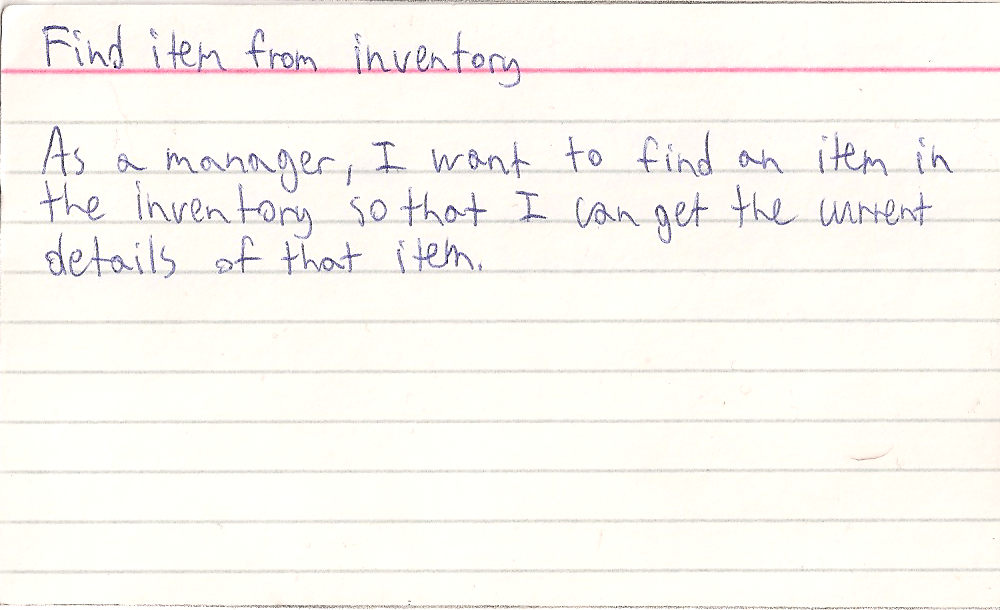 Find item from inventory
As a manager, I want to find an item in
the inventory so that I can get the current
details of that item.